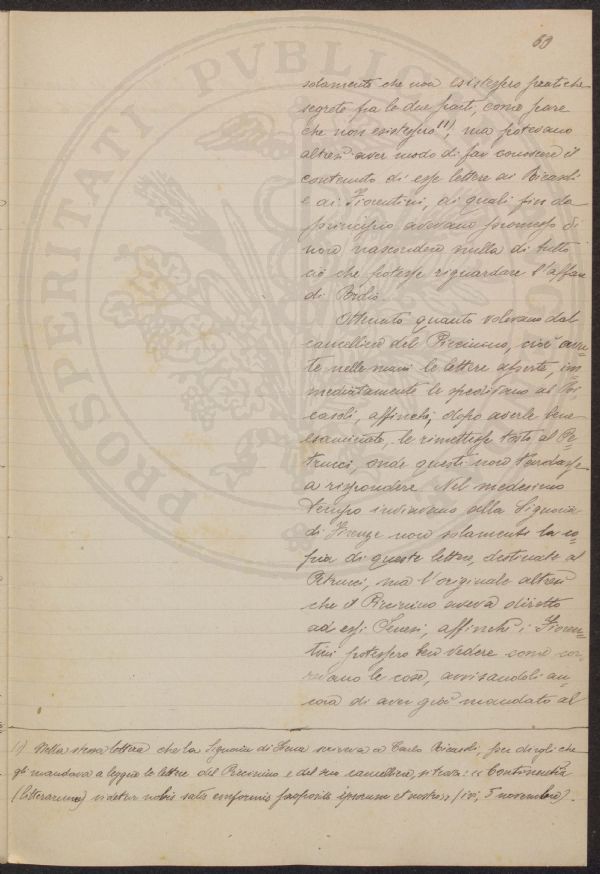 69
solamente che non esistessero pratiche
segrete fra le due parti, come pare
che non esistessero 1), ma potevano
altresì aver modo di far conoscere il
contenuto di esse lettere ai Ricasoli
e ai Fiorentini, ai quali fin da
principio avevano promesso di
non nascondere nulla di tutto
ciò che potesse riguardare l'affare
di
Ottenuto quanto volevano dal
cancelliere del Piccinino, cioè avu-
te nelle mani le lettere aperte, im
mediatamente le spedivano al Ri
casoli, affinchè, dopo averle bene
esaminate, le rimettesse tosto al Pe-
trucci, onde questi non tardasse
a rispondere. Nel medesimo
tempo inviavano alla Signoria
di Firenze non solamente la co-
pia di queste lettere, destinate al
Petrucci, ma l'originale altresì
che il Piccinino aveva diretto
ad essi Senesi, affinchè i Fioren-
tini potessero ben vedere come cor-
revano le cose, avvisandoli an-
cora di aver già mandato al
1) Nella stessa lettera che la Signoria di Siena scriveva a Carlo Ricasoli, per dirgli che
gli mandava a leggere le lettere del Piccinino e del suo cancelliere, si trova: « Continentia
(litterarum) videtur nobis satis conformis proposito ipsorum et nostro » (ivi, 5 novembre).
PROSPERITATI PVBLICAE